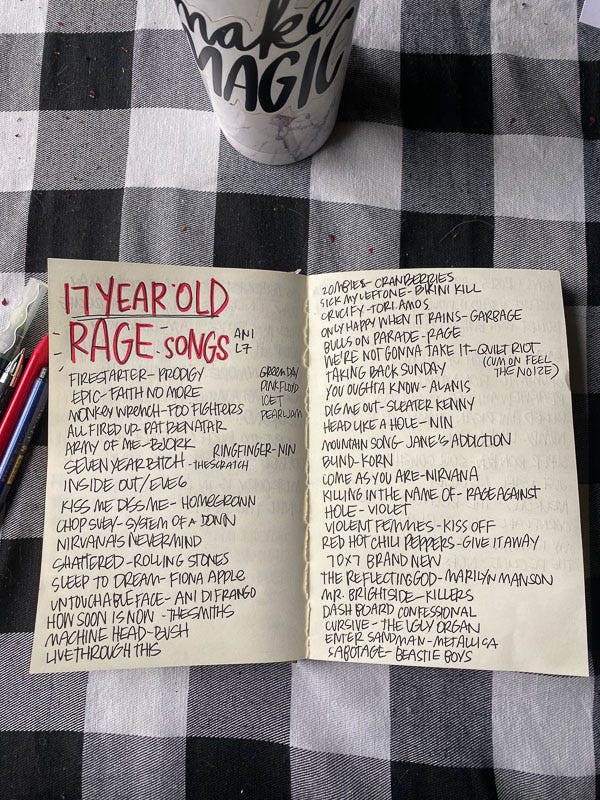 make
MAGIC
17 YEAR OLD
RAGE SONGS
ANI
L7
FIRESTARTER - PRODIGY
EPIC - FAITH NO MORE
MONKEY WRENCH - FOO FIGHTERS
ALL FIRED UP PAT BENATAR
ARMY OF ME - BJORK
SEVEN YEAR BITCH - THE SCRATCH
INSIDE OUT / EVE6
KISS ME DISS ME - HOMEGROWN
CHOP SUEY - SYSTEM OF A DOWN
NIRVANA'S NEVERMIND
SHATTERED - ROLLING STONES
SLEEP TO DREAM - FIONA APPLE
UNTOUCHABLE FACE - ANI DIFRANGO
HOW SOON IS NOW - THE SMITHS
MACHINE HEAD - BUSH
LIVE THROUGH THIS
GREEN DAY
PINK FLOYD
ICE T
PEARL JAM
RINGFINGER - NIN
ZOMBIES - CRANBERRIES
SICK MY LEFTONE - BIKINI KILL
CRUCIFY - TORI AMOS
ONLY HAPPY WHEN IT RAINS - GARBAGE
BULLS ON PARADE - RAGE
WE'RE NOT GONNA TAKE IT - QUIET RIOT
(CUM ON FEEL
THE NOIZE)
TAKING BACK SUNDAY
YOU OUGHTA KNOW - ALANIS
DIG ME OUT - SLEATER KENNY
HEAD LIKE A HOLE - NIN
MOUNTAIN SONG - JANE'S ADDICTION
BLIND - KORN
COME AS YOU ARE - NIRVANA
KILLING IN THE NAME OF - RAGE AGAINST
HOLE - VIOLET
VIOLENT FEMMES - KISS OFF
RED HOT CHILI PEPPERS - GIVE IT AWAY
70X7 BRAND NEW
THE REFLECTING GOD - MARILYN MANSON
MR. BRIGHTSIDE - KILLERS
DASHBOARD CONFESSIONAL
CURSIVE - THE UGLY ORGAN
ENTER SANDMAN - METALLICA
SABOTAGE - BEASTIE BOYS